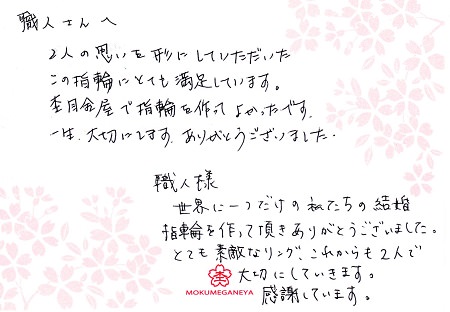 職人さんへ
2人の思いを形にしていただいた
この指輪にとても満足しています。
杢目金屋で指輪を作ってよかったです。
一生、大切にします。ありがとうございました。
職人様
世界に一つだけの私たちの結婚
指輪を作って頂きありがとうございました。
とても素敵なリング、これからも2人で
大切にしていきます。
感謝しています。
杢
MOKUMEGANEYA